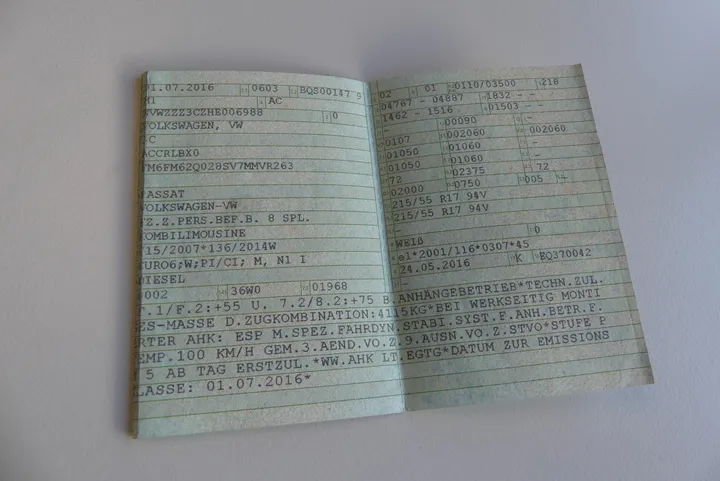 01.07.2016 0603 BQS00147 9
M1 AC
WVWZZZ3CZHE006988 0
VOLKSWAGEN, VW
3C
ACCRLBX0
FM6FM62Q028SV7MMVR263
PASSAT
VOLKSWAGEN-VW
FZ.Z.PERS.BEF.B. 8 SPL.
KOMBILIMOUSINE
715/2007*136/2014W
EURO6;W;PI/CI; M, N1 I
DIESEL
0002 36W0 01968
02 01 0110/03500 218
04767 - 04887 1832 - -
1462 - 1516 01503 - -
- 00090 -
0107 002060 002060
01050 01060 -
01050 01060 -
72 02375 72
02000 0750 005 -
215/55 R17 94V
215/55 R17 94V
- 0
*WEIß
e1*2001/116*0307*45
24.05.2016 K EQ370042
T.1/F.2:+55 U. 7.2/8.2:+75 B.ANHÄNGEBETRIEB*TECHN.ZUL.
ES-MASSE D.ZUGKOMBINATION:4115KG*BEI WERKSEITIG MONTI
RTER AHK: ESP M.SPEZ.FAHRDYN.STABI.SYST.F.ANH.BETR.F.
EMP.100 KM/H GEM.3.AEND.VO.Z.9.AUSN.VO.Z.STVO*STUFE P
5 AB TAG ERSTZUL.*WW.AHK LT.EGTG*DATUM ZUR EMISSIONS
LASSE: 01.07.2016*